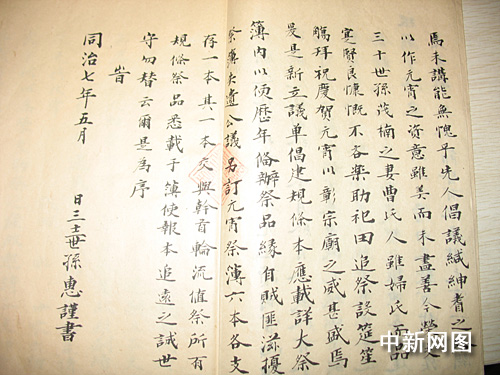 焉未講能無愧乎先人倡議紳耆之
以作元宵之資意雖美而未盡善今
三十世孫茂楠之妻曹氏人雖婦氏而品
寔賢良慷慨不吝樂助祀田追祭設筵笙
觴拜祝慶賀元宵以彰宗廟之威甚盛焉
爰是新立議單倡建規條本應載詳大祭
簿內以便歷年俻辦祭品緣自賊匪滋擾
祭簿失遺公議另訂元宵祭簿六本各支
存一本其一本交與幹首輪流值祭所有
規條祭品悉載于簿使報本追遠之誠世
守勿替云爾是為序
旹
同治七年五月 日三十一世孫惠謹書
中新网图